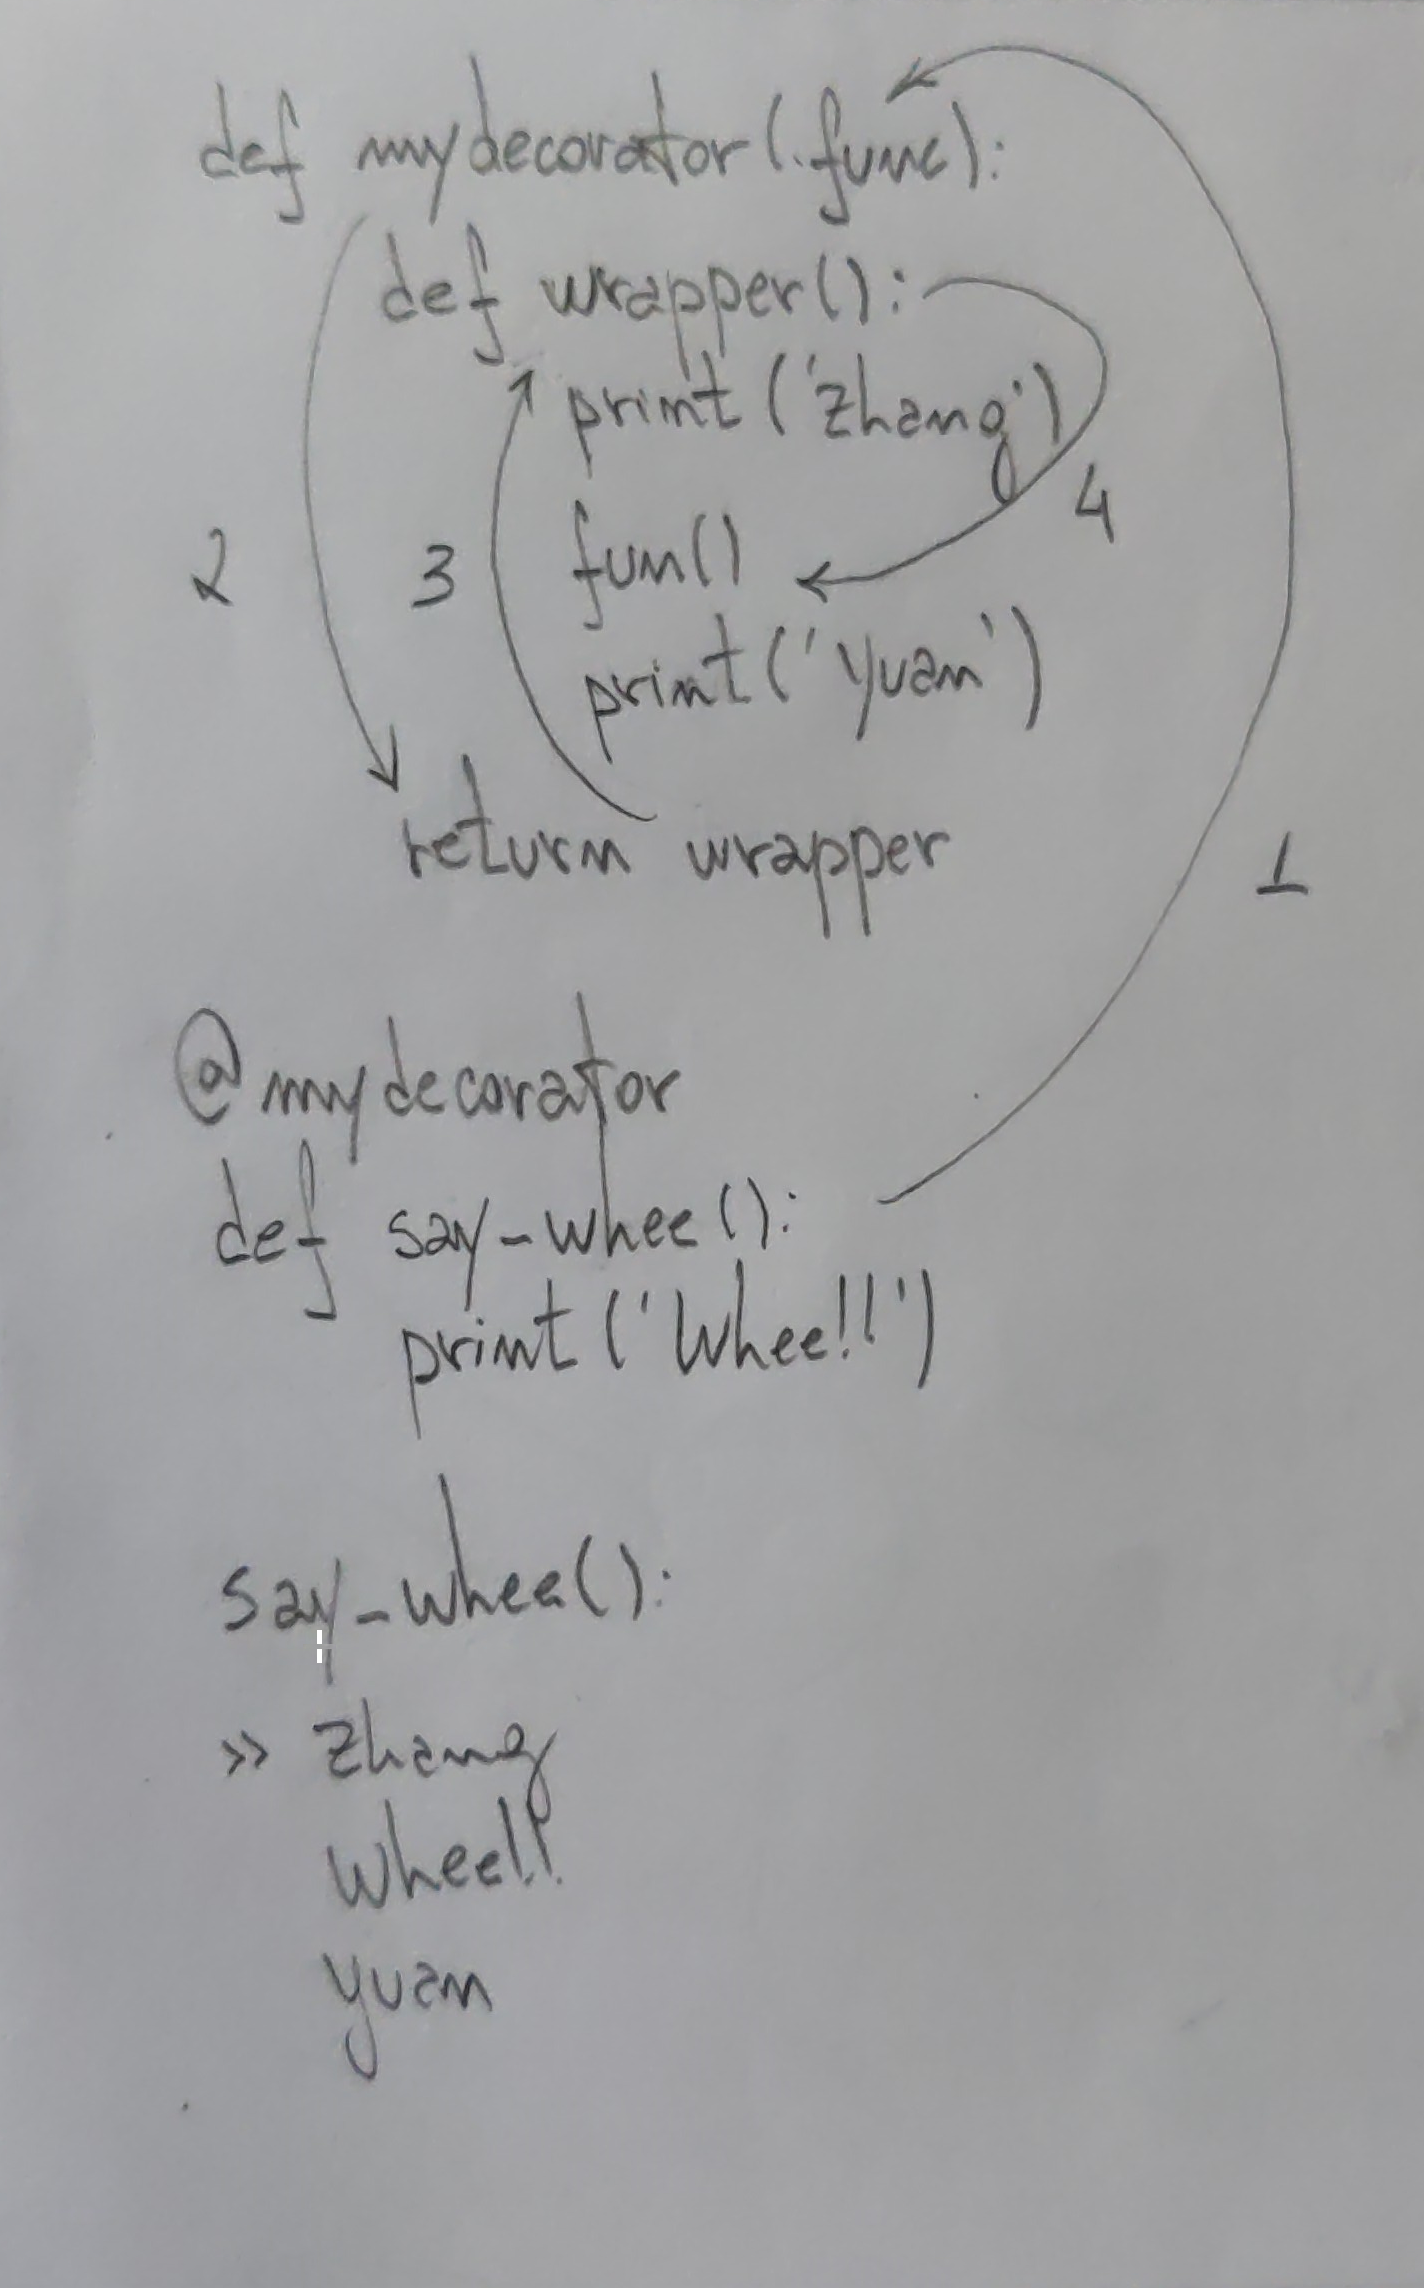 def mydecorator(func):
def wrapper():
print('zhang')
fun()
print('yuan')
return wrapper
2
3
4
1
@mydecorator
def say-whee():
print('Whee!!')
say-whee():
>> zhang
whee!!
yuan